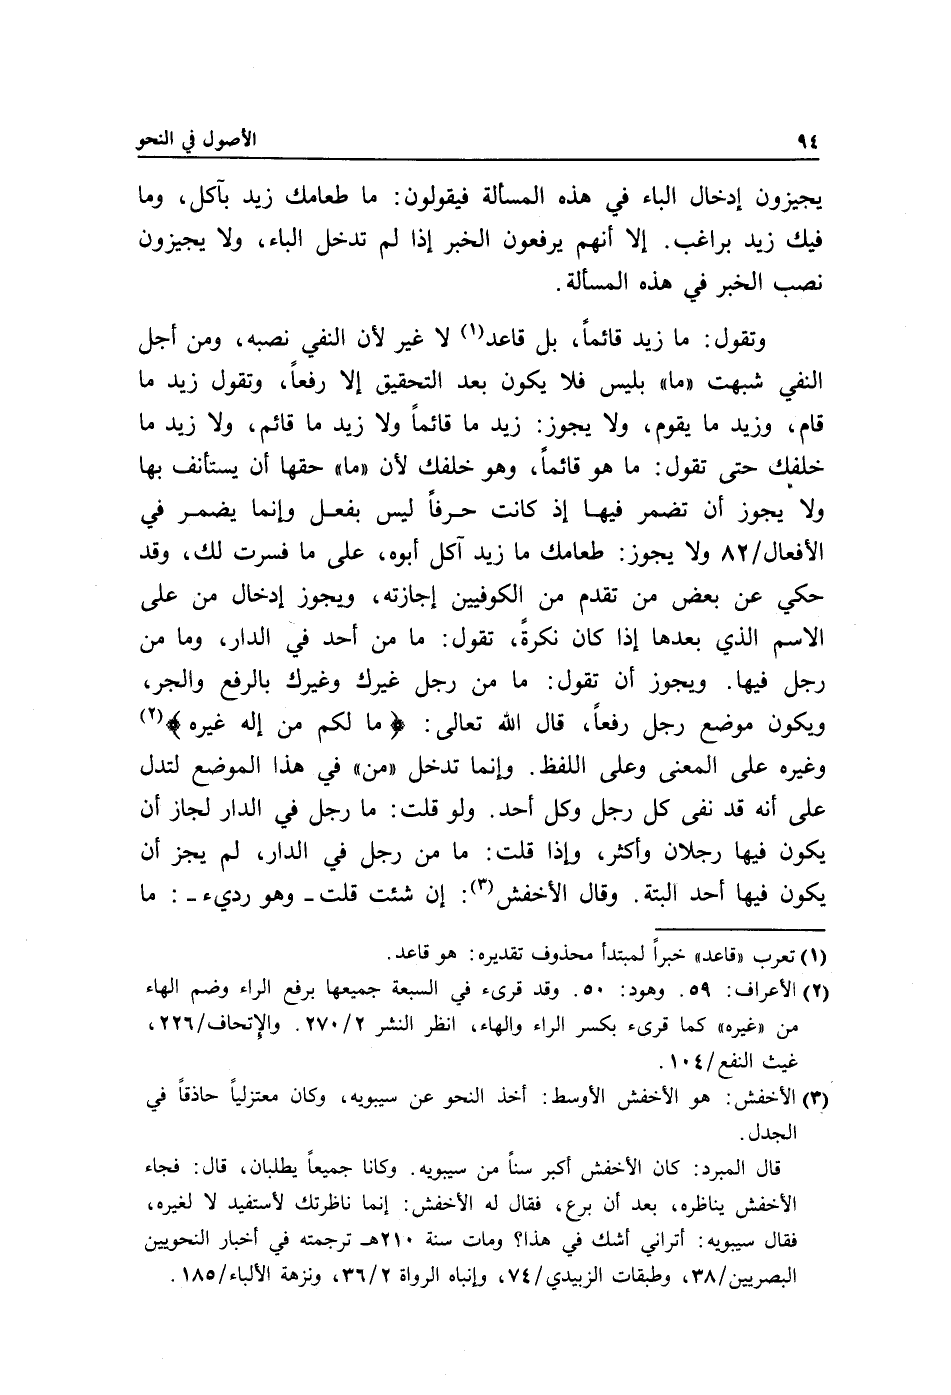 ٩٤ الأصول في النحو
يجيزون إدخال الباء في هذه المسألة فيقولون: ما طعامك زيد بآكل، وما
فيك زيد براغب. إلا أنهم يرفعون الخبر إذا لم تدخل الباء، ولا يجيزون
نصب الخبر في هذه المسألة.
وتقول: ما زيد قائماً، بل قاعد(١) لا غير لأن النفي نصبه، ومن أجل
النفي شبهت «ما» بليس فلا يكون بعد التحقيق إلا رفعاً، وتقول زيد ما
قام، وزيد ما يقوم، ولا يجوز: زيد ما قائماً ولا زيد ما قائم، ولا زيد ما
خلفك حتى تقول: ما هو قائماً، وهو خلفك لأن «ما» حقها أن يستأنف بها
ولا يجوز أن تضمر فيها إذ كانت حرفاً ليس بفعل وإنما يضمر في
الأفعال/٨٢ ولا يجوز: طعامك ما زيد آكل أبوه، على ما فسرت لك، وقد
حكي عن بعض من تقدم من الكوفيين إجازته، ويجوز إدخال من على
الاسم الذي بعدها إذا كان نكرة، تقول: ما من أحد في الدار، وما من
رجل فيها. ويجوز أن تقول: ما من رجل غيرك وغيرك بالرفع والجر،
ويكون موضع رجل رفعاً، قال الله تعالى: ﴿ما لكم من إله غيره﴾(٢)
وغيره على المعنى وعلى اللفظ. وإنما تدخل «من» في هذا الموضع لتدل
على أنه قد نفى كل رجل وكل أحد. ولو قلت: ما رجل في الدار لجاز أن
يكون فيها رجلان وأكثر، وإذا قلت: ما من رجل في الدار، لم يجز أن
يكون فيها أحد البتة. وقال الأخفش(٣): إن شئت قلت ـ وهو رديء ـ: ما
(١) تعرب «قاعد» خبراً لمبتدأ محذوف تقديره: هو قاعد.
(٢) الأعراف: ٥٩. وهود: ٥٠. وقد قرىء في السبعة جميعها برفع الراء وضم الهاء
من «غيره» كما قرىء بكسر الراء والهاء، انظر النشر ٢/ ٢٧٠. والإتحاف/٢٢٦،
غيث النفع/١٠٤.
(٣) الأخفش: هو الأخفش الأوسط: أخذ النحو عن سيبويه، وكان معتزلياً حاذقاً في
الجدل.
قال المبرد: كان الأخفش أكبر سناً من سيبويه. وكانا جميعاً يطلبان، قال: فجاء
الأخفش يناظره، بعد أن برع، فقال له الأخفش: إنما ناظرتك لأستفيد لا لغيره،
فقال سيبويه: أتراني أشك في هذا؟ ومات سنة ٢١٠هـ ترجمته في أخبار النحويين
البصريين/٣٨، وطبقات الزبيدي/٧٤، وإنباه الرواة ٢/ ٣٦، ونزهة الألباء/١٨٥.